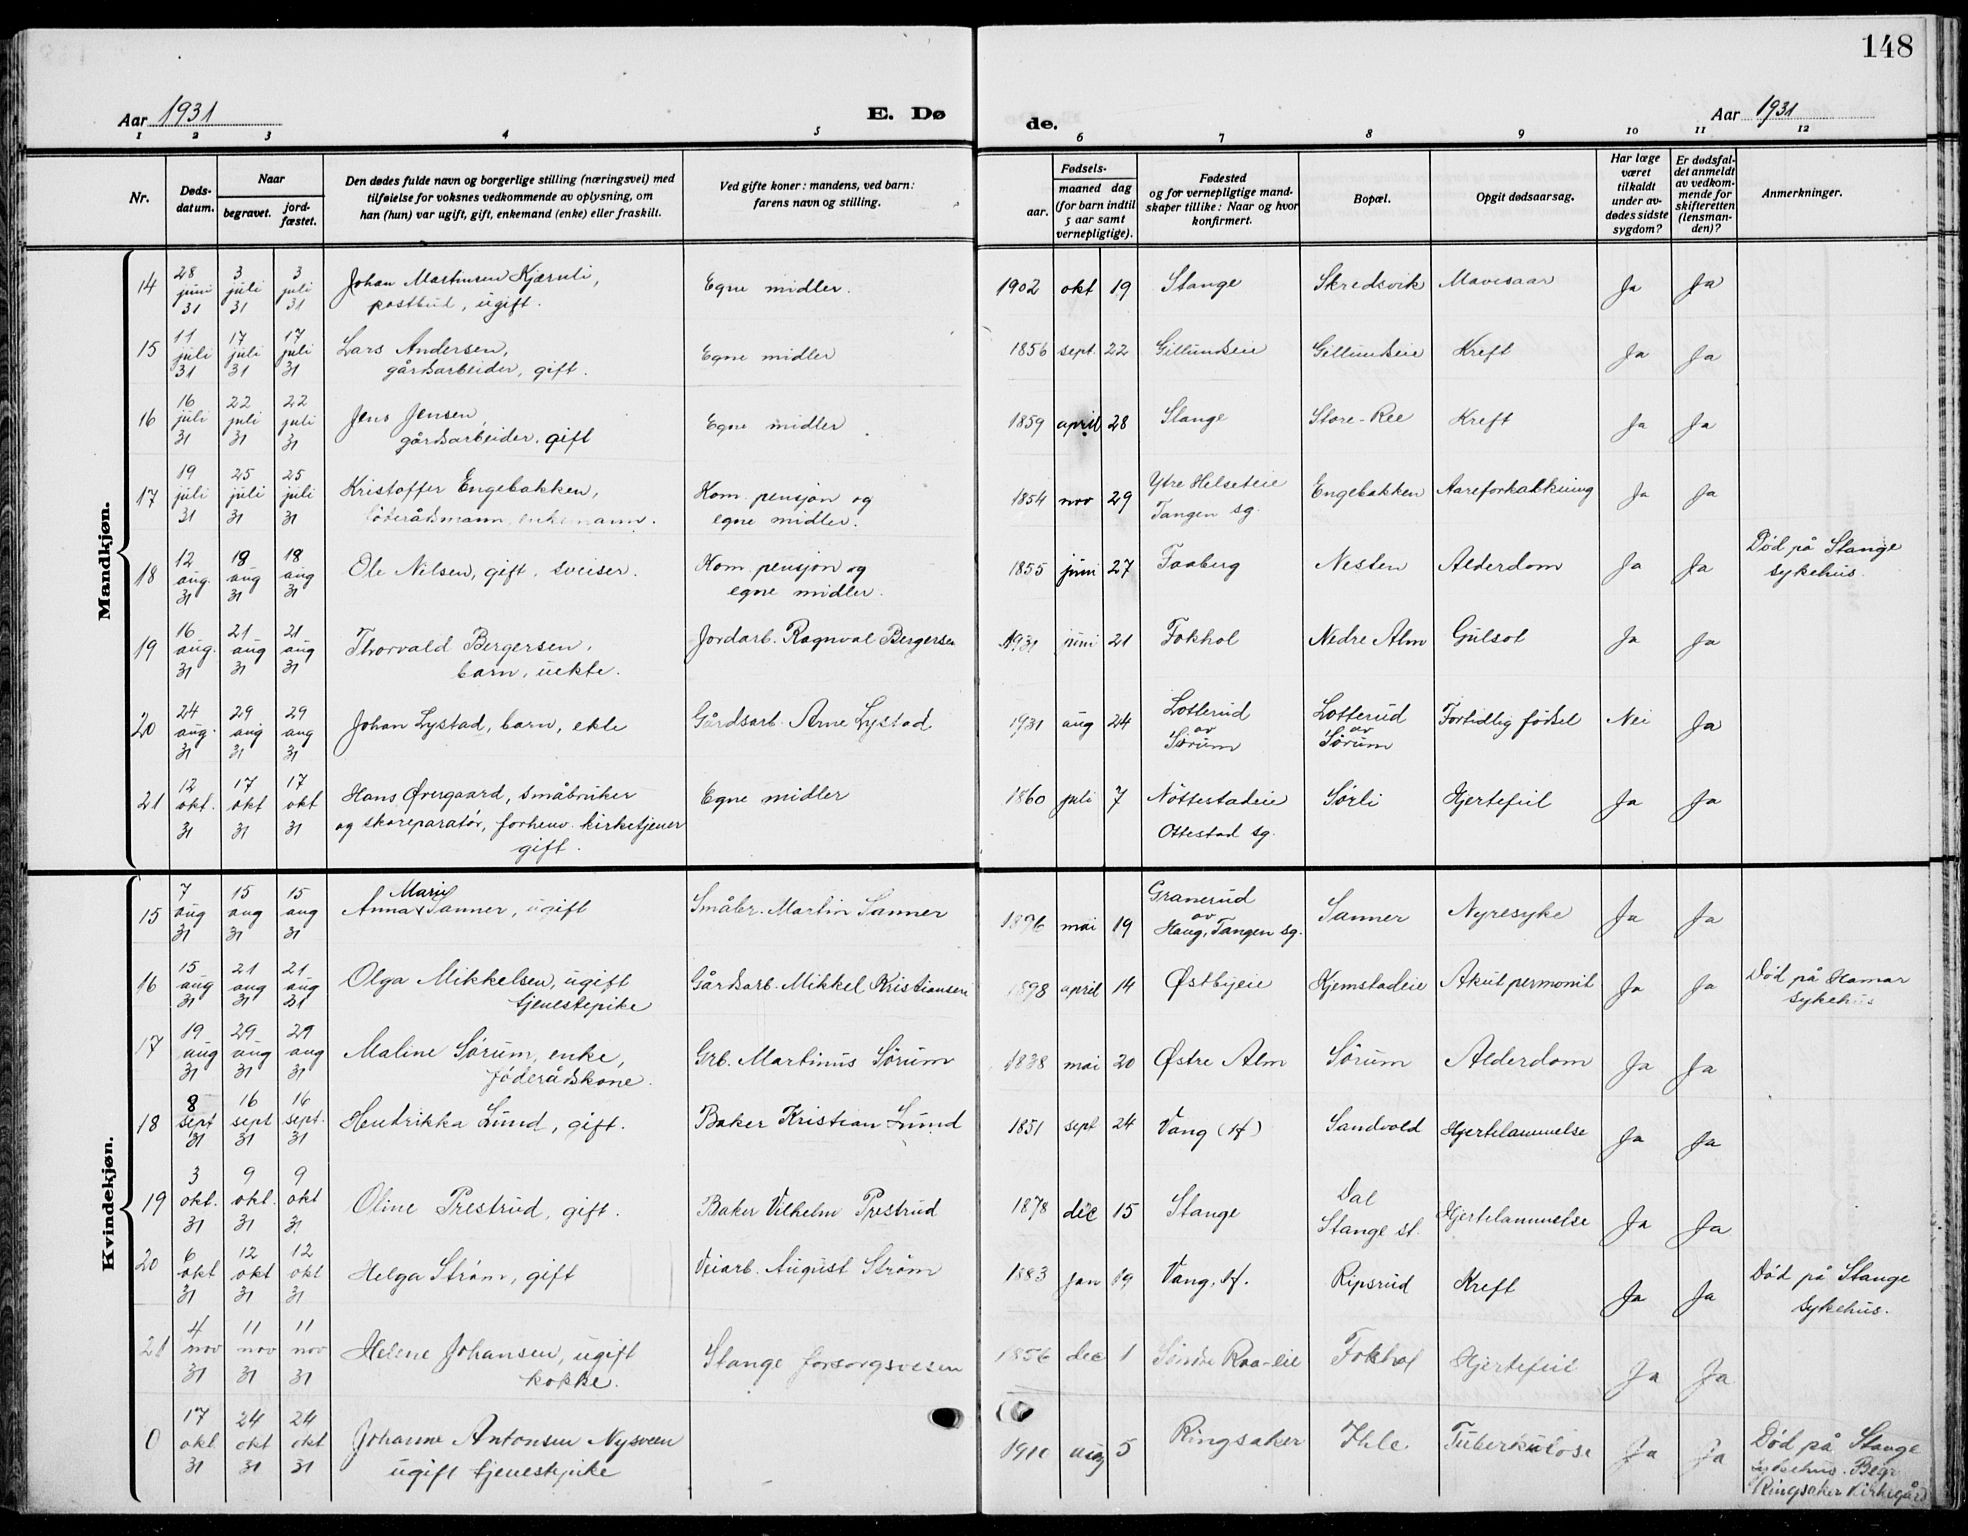 148
Aar 1931
E. Dø
de.
Aar 1931
1 2 3 4 5 6 7 8 9 10 11 12
Nr.
Døds-
datum.
Naar
begravet.
jord-
fæstet.
Den dødes fulde navn og borgerlige stilling (næringsvei) med
tilføielse for voksnes vedkommende av oplysning, om
han (hun) var ugift, gift, enkemand (enke) eller fraskilt.
Ved gifte koner: mandens, ved barn:
farens navn og stilling.
Fødsels-
aar.
maaned dag
(for barn indtil
5 aar samt
vernepligtige).
Fødested
og for vernepligtige mand-
skaper tillike: Naar og hvor
konfirmert.
Bopæl.
Opgit dødsaarsag.
Har læge
været
tilkaldt
under av-
dødes sidste
sygdom?
Er dødsfal-
det anmeldt
av vedkom-
mende for
skifteretten
(lensman-
den)?
Anmerkninger.
Mandkjøn.
14 28 juni 31 3 juli 31 3 juli 31 Johan Martinsen Kjærnli, postbud, ugift. Egne midler. 1902 okt 19 Stange Skredsvik Mavesaar Ja Ja
15 11 juli 31 17 juli 31 17 juli 31 Lars Andersen, gårdsarbeider, gift. Egne midler 1856 sept. 22 Gillundseie Gillundseie Kreft Ja Ja
16 16 juli 31 22 juli 31 22 juli 31 Jens Jensen, gårdsarbeider, gift Egne midler 1859 april 28 Stange Store-Ree Kreft Ja Ja
17 19 juli 31 25 juli 31 25 juli 31 Kristoffer Engebakken, föderådsmann, enkemann. Kom. pensjon og egne midler. 1854 nov 29 Ytre Helseteie Tangen sg. Engebakken Aareforkalkning Ja Ja
18 12 aug. 31 18 aug 31 18 aug 31 Ole Nilsen, gift, sveiser. Kom. pensjon og egne midler. 1855 juni 27 Faaberg Nesten Alderdom Ja Ja Död på Stange sykehus.
19 16 aug. 31 21 aug 31 21 aug 31 Thorvald Bergersen, barn, uekte. Jordarb. Ragnval Bergersen 1931 juni 21 Fokhol Nedre Alm Gulsot Ja Ja
20 24 aug. 31 29 aug 31 29 aug 31 Johan Lystad, barn, ekte Gårdsarb. Arne Lystad 1931 aug 24 Lotterud av Sørum Lotterud av Sørum Fortidlig födsel Nei Ja
21 12 okt. 31 17 okt 31 17 okt 31 Hans Övergaard, småbruker og skoreparatör, forhenv. kirketjener gift. Egne midler 1860 juli 7 Nöttestadeie Ottestad sg. Sörli Hjertefeil Ja Ja
Kvindekjøn.
15 7 aug 31 15 aug 31 15 aug 31 Anna Marie Sanner, ugift Småbr. Martin Sanner 1896 mai 19 Granerud av Haug, Tangen sg. Sanner Nyresyke Ja Ja
16 15 aug 31 21 aug 31 21 aug 31 Olga Mikkelsen, ugift tjenestepike Gårdsarb. Mikkel Kristiansen 1898 april 14 Østbyeie Kjemstadeie Akut permonit Ja Ja Död på Hamar sykehus
17 19 aug 31 29 aug 31 29 aug 31 Maline Sörum, enke, föderådskone. Grb. Martinus Sörum 1838 mai 20 Østre Alm Sörum Alderdom Ja Ja
18 8 sept 31 16 sept 31 16 sept. 31 Hendrikka Lund, gift. Baker Kristian Lund 1851 sept 24 Vang (H) Sandvold Hjertelammelse Ja Ja
19 3 okt. 31 9 okt. 31 9 okt 31 Oline Prestrud, gift. Baker Vilhelm Prestrud 1878 dec 15 Stange Dal Stange st. Hjertelammelse Ja Ja
20 6 okt 31 12 okt 31 12 okt 31 Helga Ström, gift Veiarb. August Ström 1883 jan 19 Vang, H. Ripsrud Kreft Ja Ja Död på Stange sykehus.
21 4 nov 31 11 nov 31 11 nov 31 Helene Johansen, ugift kokke. Stange forsorgsvesen 1856 dec 1 Söndre Raa-eie Fokhol Hjertefeil Ja Ja
0 17 okt. 31 24 okt 31 24 okt 31 Johanne Antonsen Nysveen ugift tjenestepike 1910 aug 5 Ringsaker Ihle Tuberkulose Ja Ja Död på Stange sykehus. Begr. Ringsaker kirkegård